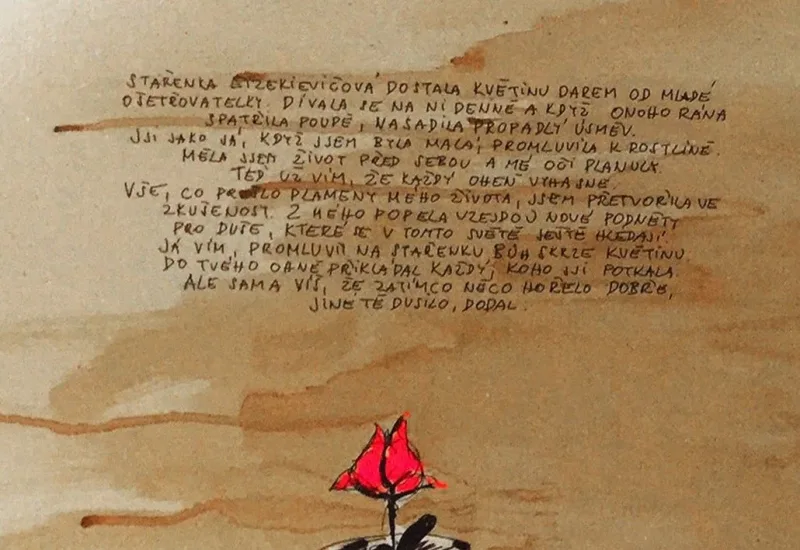 STAŘENKA DOSTALA KVĚTINU DAREM OD MLADÉ
OŠETŘOVATELKY. DÍVALA SE NA NI DENNĚ A KDYŽ ONOHO RÁNA
SPATŘILA POUPĚ, NASADILA PROPADLÝ ÚSMĚV.
JSI JAKO JÁ, KDYŽ JSEM BYLA MALÁ, PROMLUVILA K ROSTLINĚ.
MĚLA JSEM ŽIVOT PŘED SEBOU A MÉ OČI PLANULY.
TEĎ UŽ VÍM, ŽE KAŽDÝ OHEŇ VYHASNE.
VŠE, CO PROŠLO PLAMENY MÉHO ŽIVOTA, JSEM PŘETVOŘILA VE
ZKUŠENOST. Z MÉHO POPELA VZEJDOU NOVÉ PODNĚTY
PRO DUŠE, KTERÉ SE V TOMTO SVĚTĚ JEŠTĚ HLEDAJÍ.
JÁ VÍM, PROMLUVIL NA STAŘENKU BŮH SKRZE KVĚTINU.
DO TVÉHO OHNĚ PŘIKLÁDAL KAŽDÝ, KOHO JSI POTKALA.
ALE SAMA VÍŠ, ŽE ZATÍMCO NĚCO HOŘELO DOBŘE,
JINÉ TĚ DUSILO, DODAL.